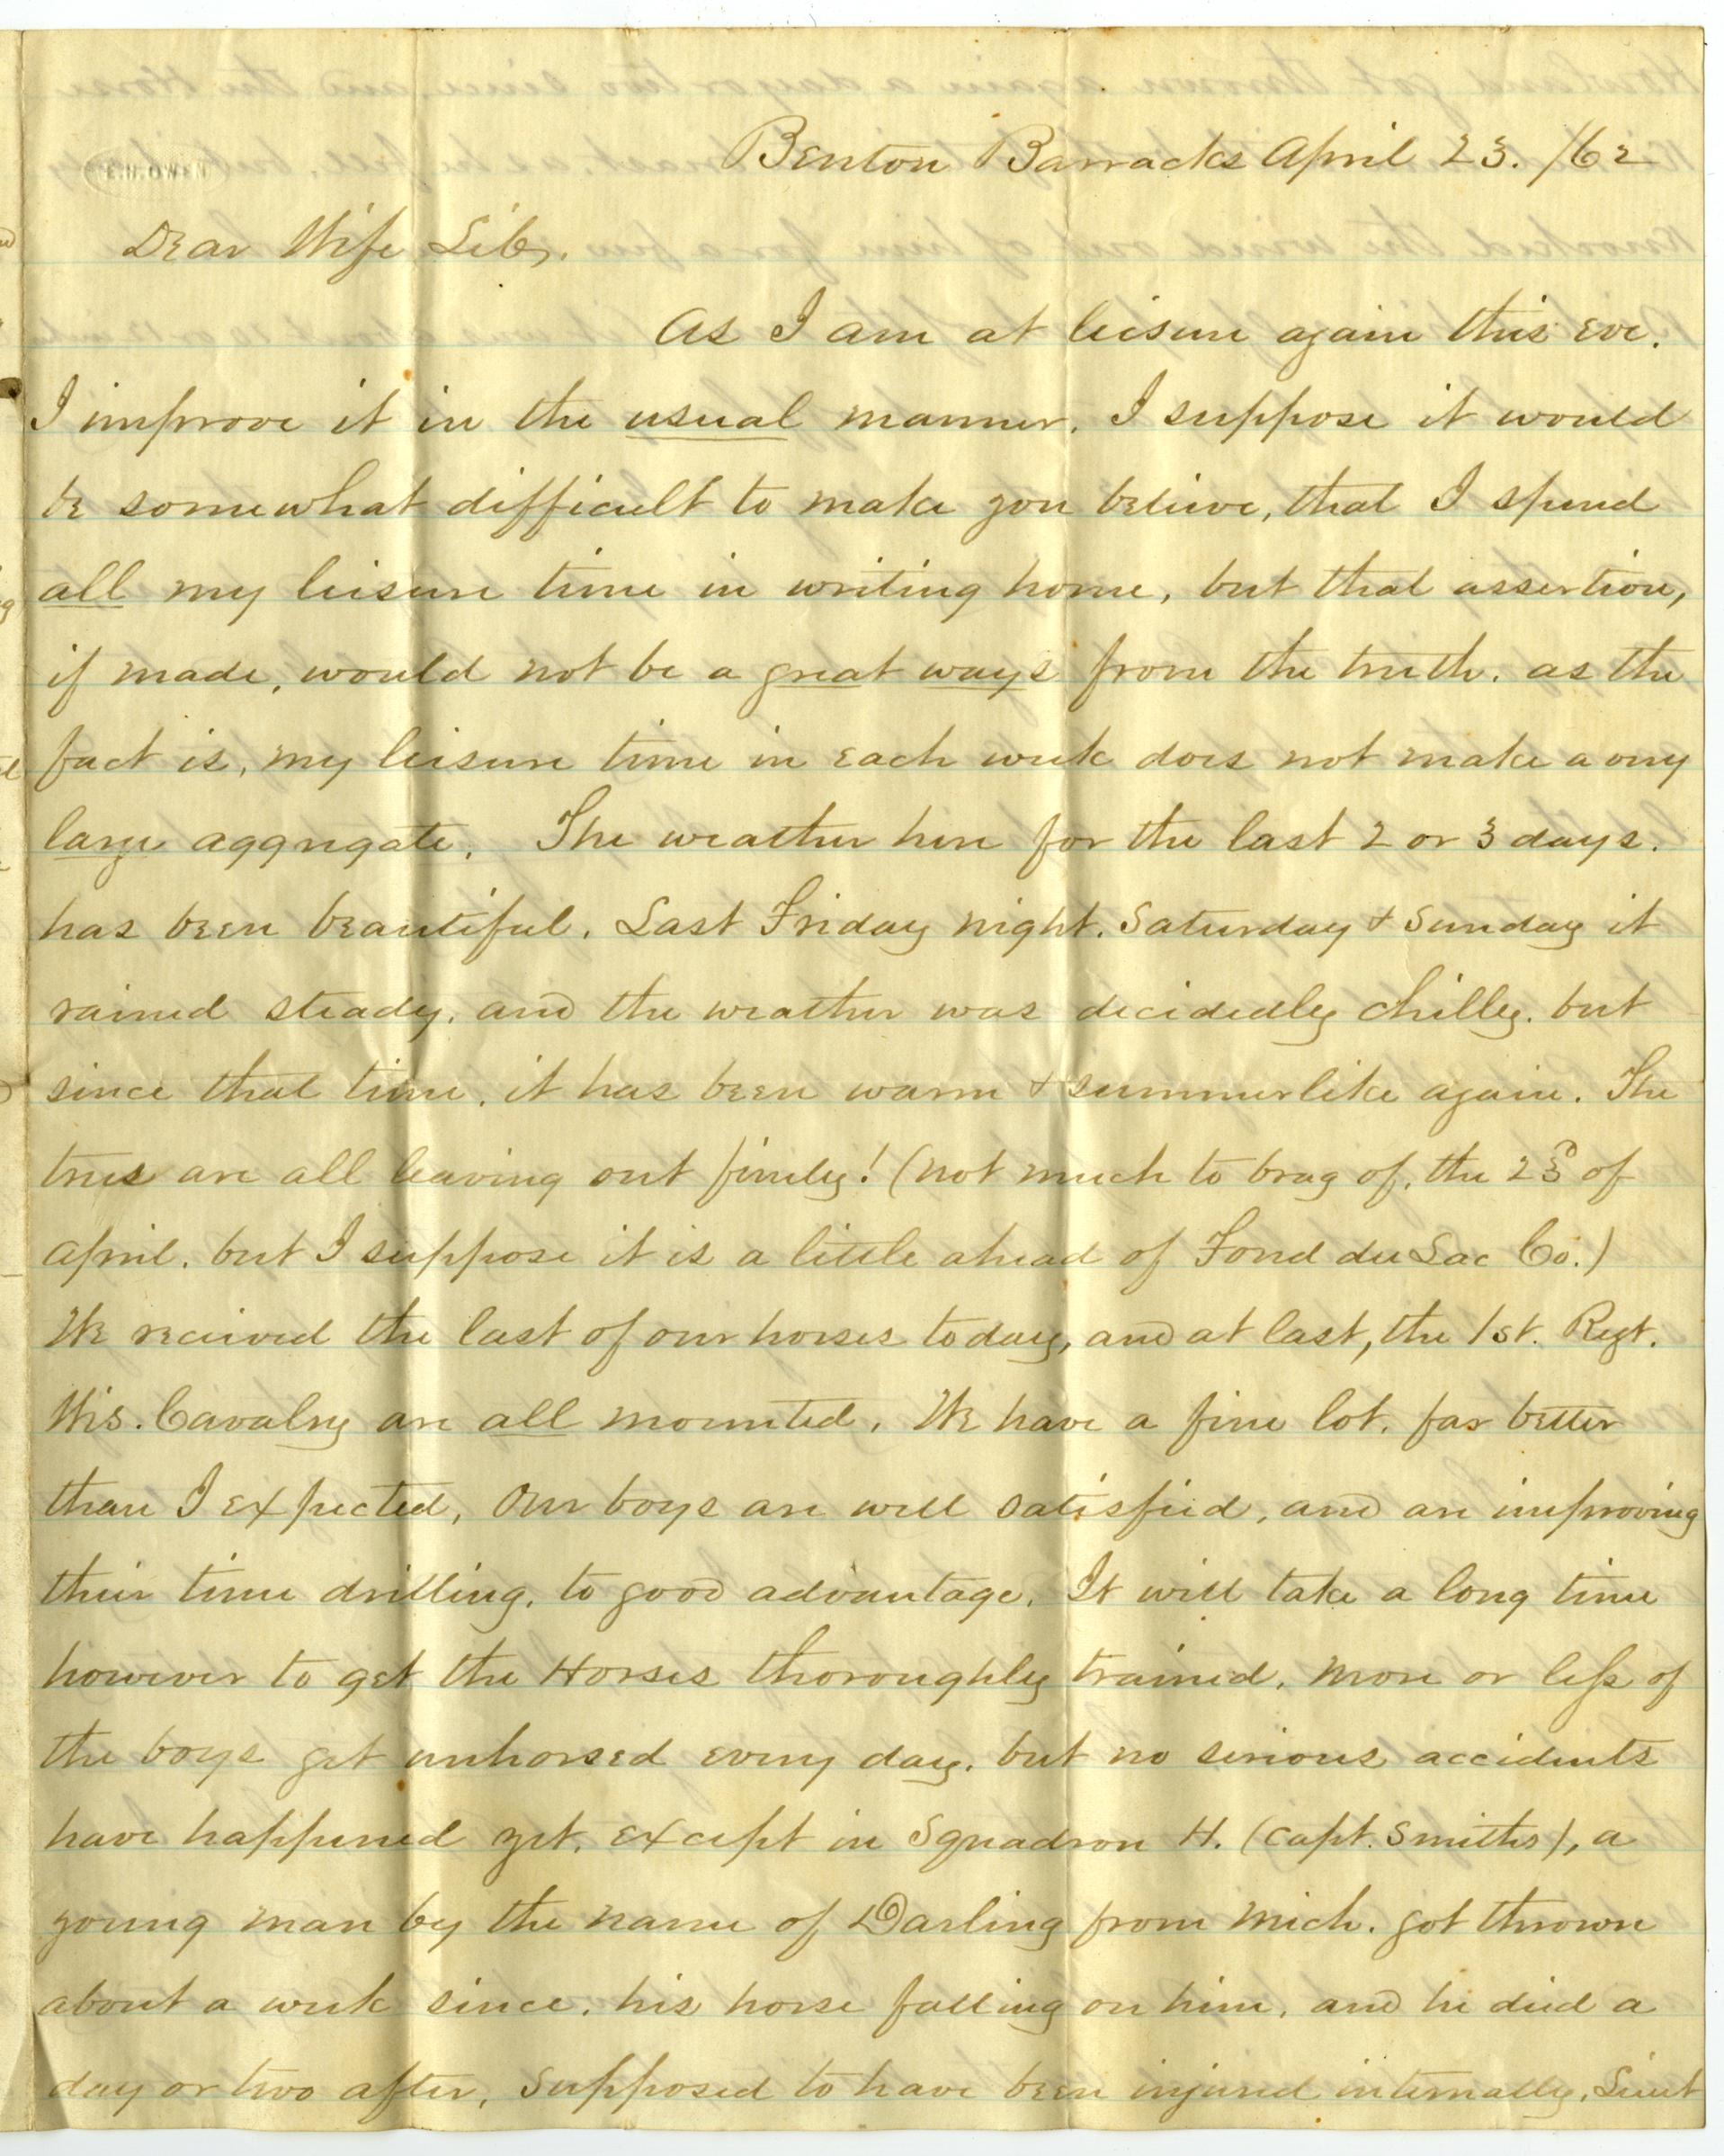 E.H. OWEN
Benton Barracks April 23. /62
Dear Wife Lib,
As I am at leisure again this eve.
I improve it in the usual manner. I suppose it would
be somewhat difficult to make you believe, that I spend
all my leisure time in writing home, but that assertion,
if made, would not be a great ways from the truth. as the
fact is, my leisure time in each week does not make a very
large aggregate. The weather here for the last 2 or 3 days.
has been beautiful. Last Friday night. Saturday & Sunday it
rained steady. and the weather was decidedly chilly. but
since that time. it has been warm & summerlike again. The
trees are all leaving out finely! (not much to brag of. the 23d of
April. but I suppose it is a little ahead of Fond du Lac Co.)
We received the last of our horses today, and at last, the 1st. Regt.
Wis. Cavalry are all mounted. We have a fine lot. far better
than I expected, Our boys are well satisfied, and are improving
their time drilling. to good advantage. It will take a long time
however to get the Horses thoroughly trained. More or less of
the boys get unhorsed every day. but no serious accidents
have happened yet. except in Squadron H. (Capt. Smiths), a
young man by the name of Darling from Mich. got thrown
about a week since. his horse falling on him, and he died a
day or two after, supposed to have been injured internally. Lieut